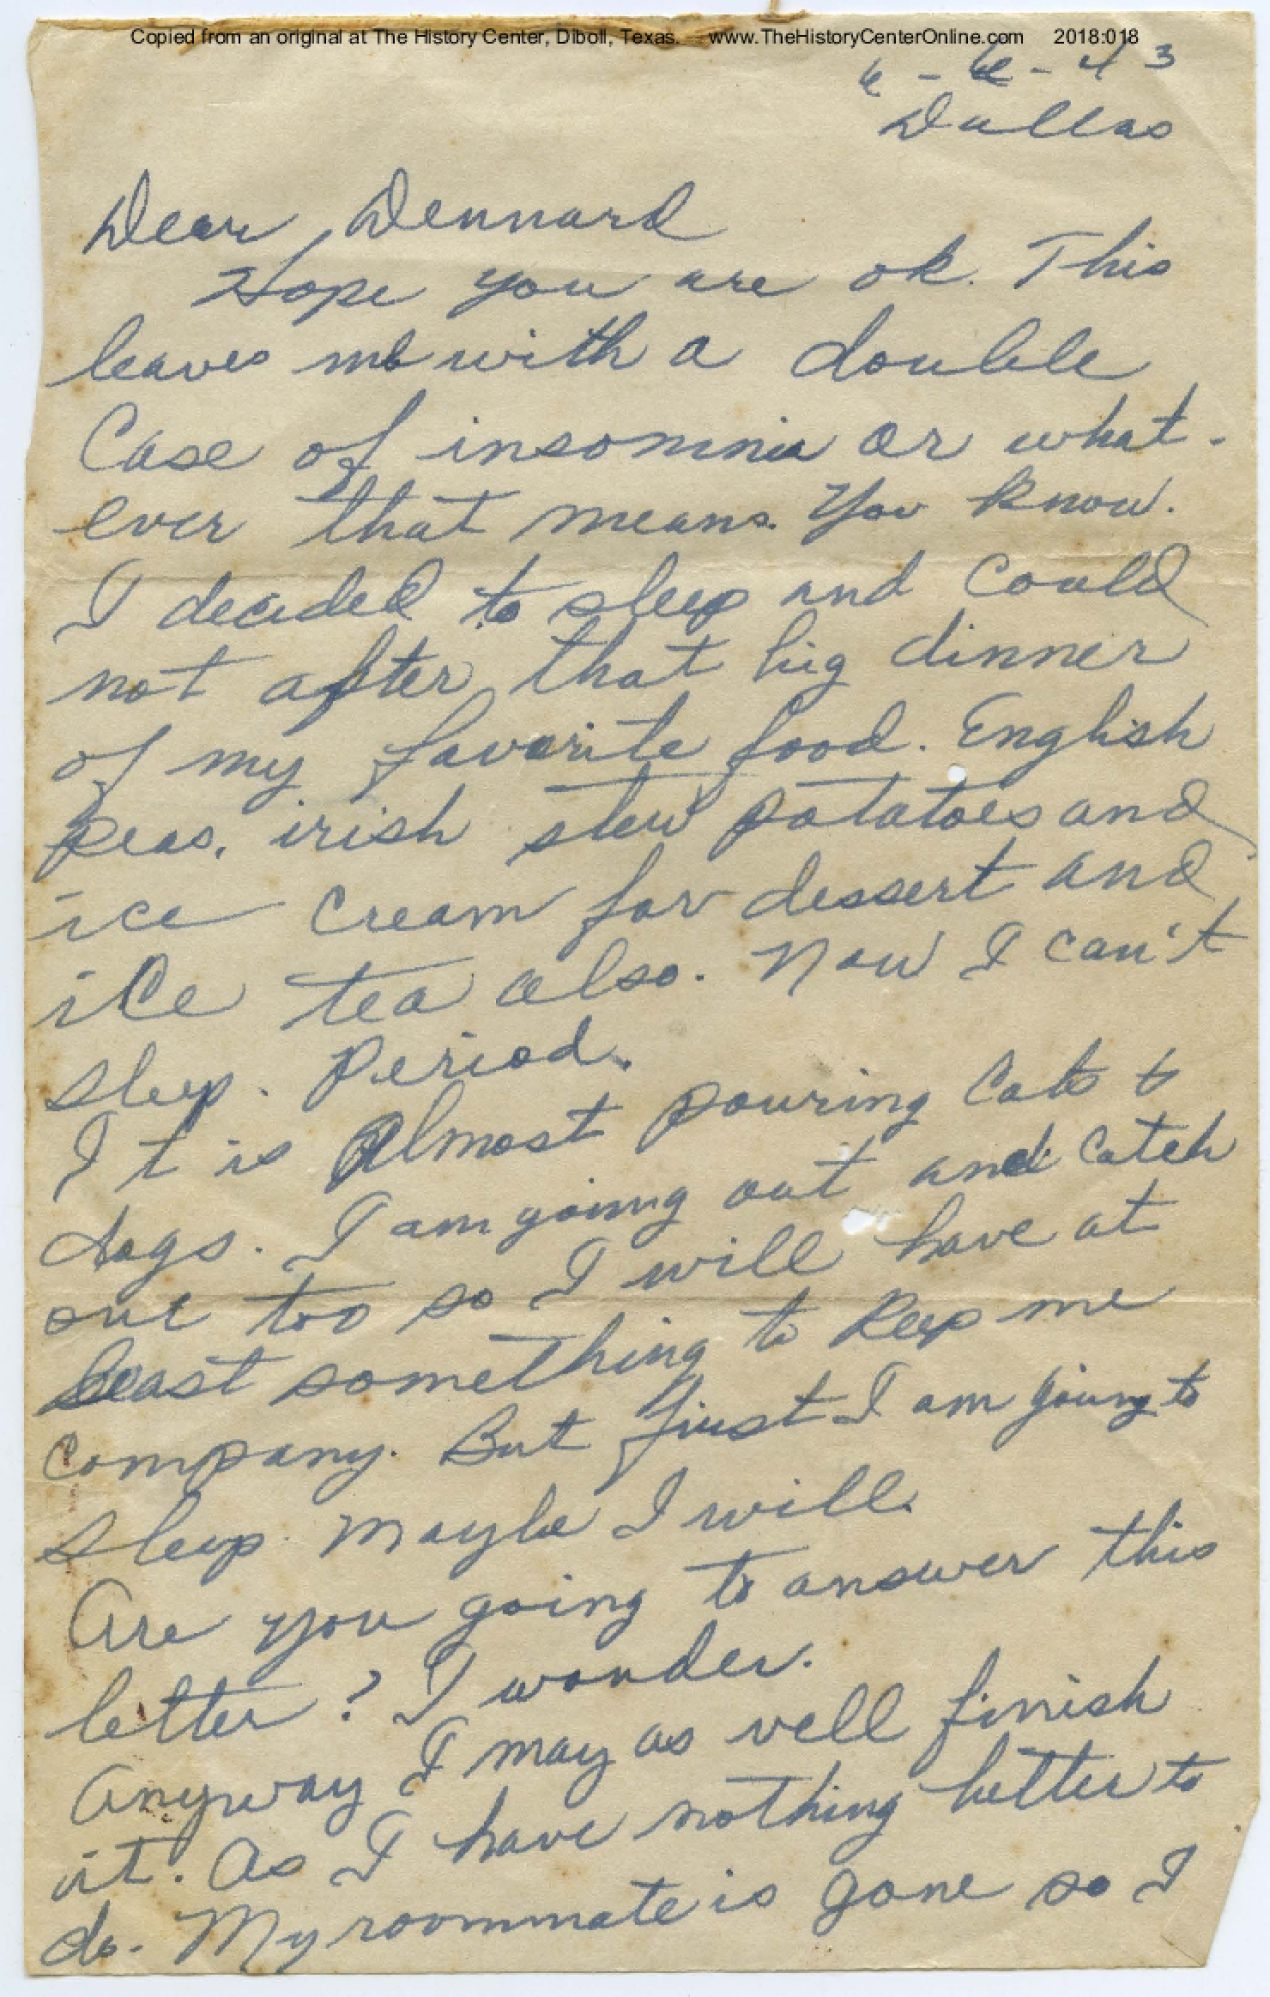 Copied from an original at The History Center, Diboll, Texas. www.TheHistoryCenterOnline.com 2018:018
6-6-43
Dallas
Dear Dennard
Hope you are ok. This
leaves me with a double
Case of insomnia or what-
ever that means. You know.
I decided to sleep and could
not after that big dinner
of my favorite food. English
peas, irish stew potatoes and
ice cream for dessert and
ice tea also. Now I can't
sleep. Period.
It is almost pouring cats &
dogs. I am going out and catch
one too so I will have at
least something to keep me
company. But first I am going to
sleep. Maybe I will.
Are you going to answer this
letter? I wonder.
Anyway I may as well finish
it. As I have nothing better to
do. My roommate is gone so I